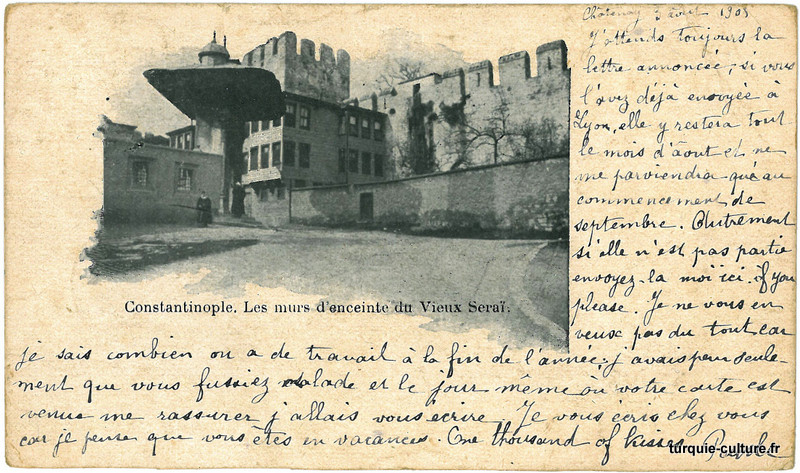 Châtenay 3 août 1903
J'attends toujours la
lettre annoncée; si vous
l'avez déjà envoyée à
Lyon, elle y restera tout
le mois d'août et ne
me parviendra qu'au
commencement de
septembre. Autrement
si elle n'est pas partie
envoyez-la moi ici. If you
please. Je ne vous en
veux pas du tout car
Constantinople. Les murs d'enceinte du Vieux Seraï.
je sais combien on a de travail à la fin de l'année; j'avais peur seule-
ment que vous fussiez malade et le jour même où votre carte est
venue me rassurer j'allais vous écrire. Je vous écris chez vous
car je pense que vous êtes en vacances. One thousand of kisses
turquie-culture.fr